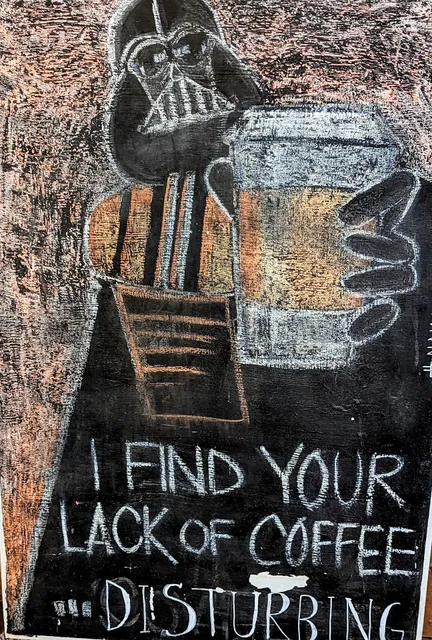 I FIND YOUR
LACK OF COFFEE
...DISTURBING